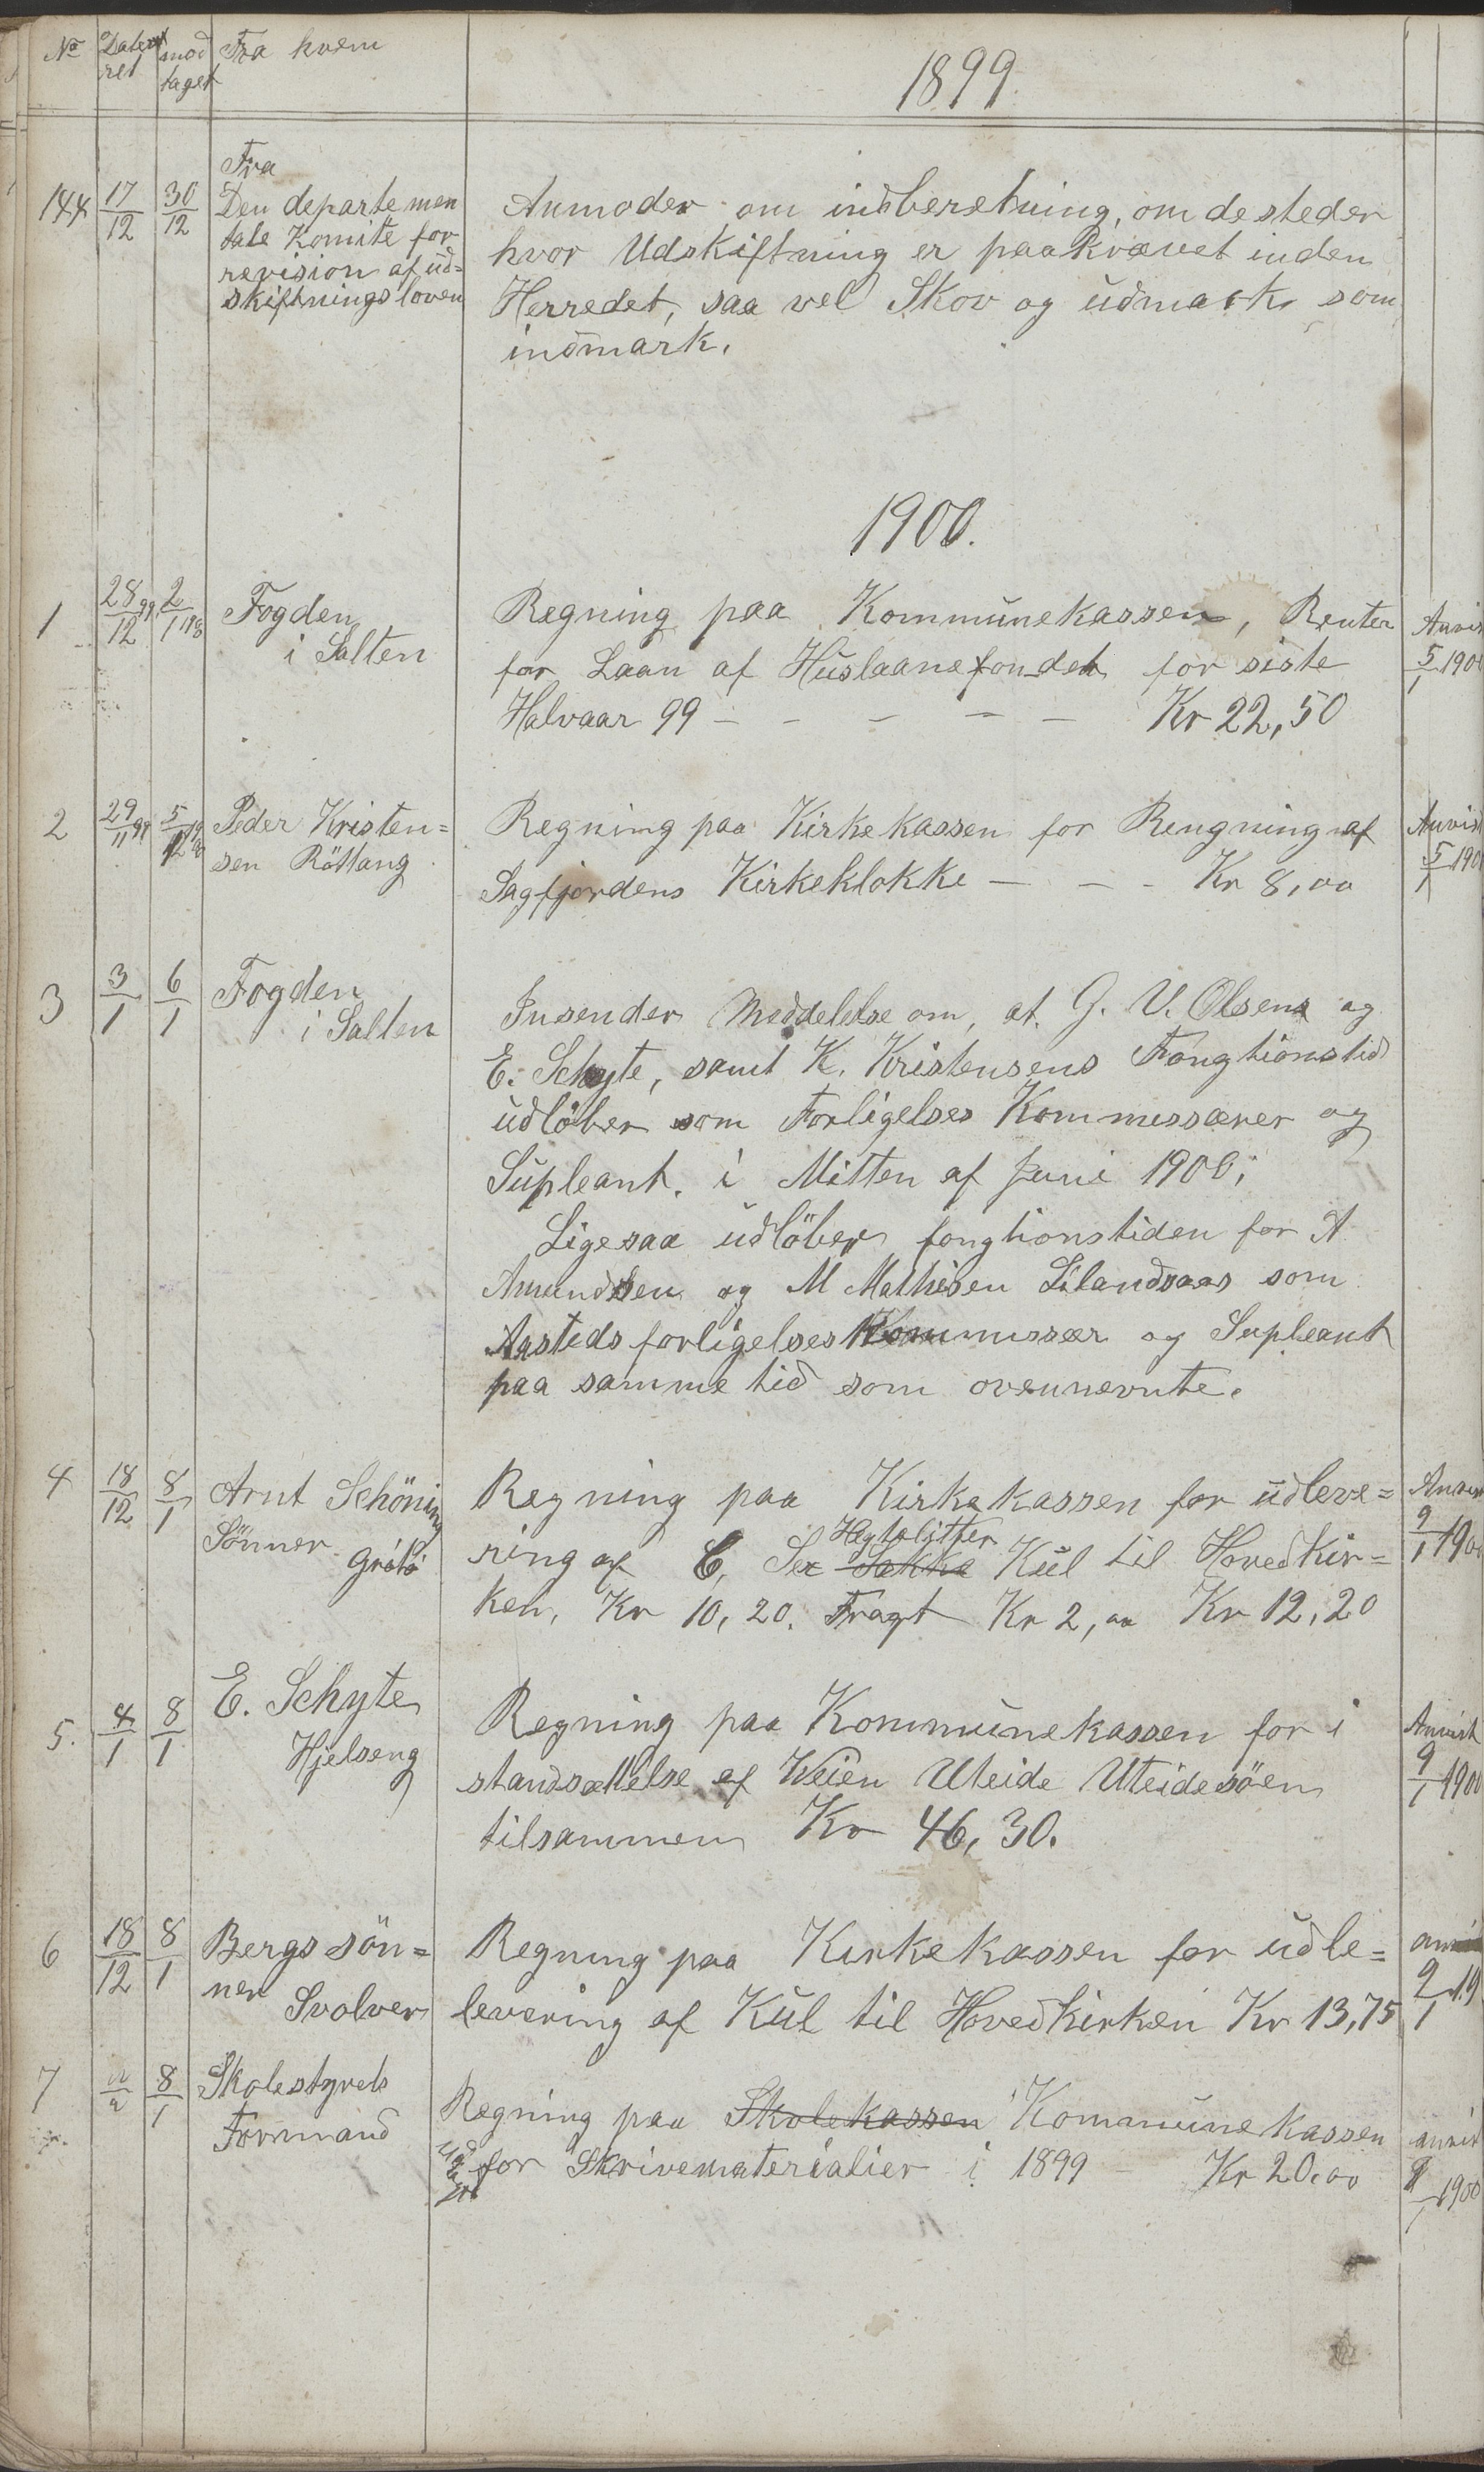 No Dateret modtaget Fra hvem
1899.
Fra
144 17/12 30/12 Den departemen
tale Komite for
revision af ud=
skiftningsloven
Anmoder om indberetning, om de steder
hvor Udskiftning er paakrævet inden
Herredet, saa vel Skov og udmark som
indmark.
1900.
1 28/12 99 2/1 Fogden
i Salten
Regning paa Kommunekassen, Renter
for Laan af Huslaanefondet for siste
Halvaar 99 - - - - - Kr 22,50
Anvist
5/1 1900
2 29/11 99 Peder Kristen=
sen Röttang
Regning paa Kirkekassen for Rengning af
Sagfjordens Kirkeklokke - - - Kr 8,00
Anvist
5/1 1900
3 3/1 6/1 Fogden
i Salten
Insender Meddelelse om, at G. V. Olsens og
E. Schyte, samt K. Kristensens Fongtionstid
udlöber som Forligelses Kommissærer og
Supleant. i Mitten af Juni 1900;
Ligesaa udlöber fongtionstiden for A
Amundsen og M Mathisen Lilandsaas som
Aastedsforligelses Kommissær og Supleant
paa samme tid som ovennevnte.
4 18/12 8/1 Arnt Schöning
Sönner Grötö
Regning paa Kirkekassen for udleve=
Hegtolitter
ring af 6, Sex Sække Kul til Hovedkir=
ken, Kr 10,20. Fragt Kr 2,00 Kr 12,20
Anvist
9/1 1900
5. 4/1 8/1 E. Schyte
Hjelseng
Regning paa Kommunekassen for i
standsættelse af Veien Uteide Uteidesöen
tilsammen Kr 46,30.
Anvist
9/1 1900
6 18/12 8/1 Bergs sön=
ner
Svolver
Regning paa Kirkekassen for udle=
levering af Kul til Hovedkirken Kr 13,75
9/1 19
7 8/1 Skolestyrets
Formand
Regning paa Skolekassen Kommunekassen
for Skrivematerialier i 1899 - Kr 20.00
anvist
9/1 1900